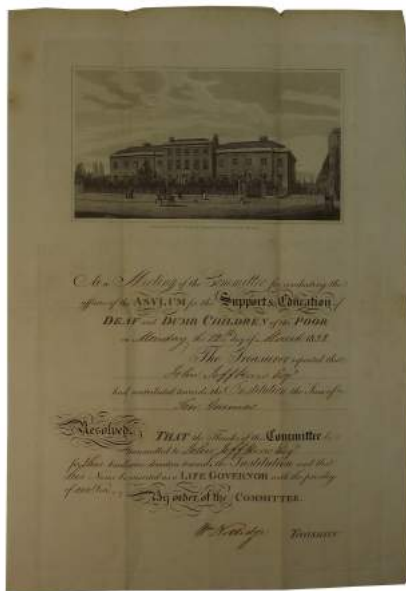 At a Meeting of the Committee for conducting the
affairs of the ASYLUM for the Support & Education of
DEAF and DUMB CHILDREN of the POOR
on Monday, the 12th day of March 1828
The Treasurer reported that
John Esqr
had contributed towards the Institution the Sum of
Ten Guineas
Resolved, THAT the Thanks of the Committee be
transmitted to John Esqr
for this donation towards the Institution and that
Name be as a LIFE GOVERNOR with the privilege
of
By order of the COMMITTEE.
Wm TREASURER